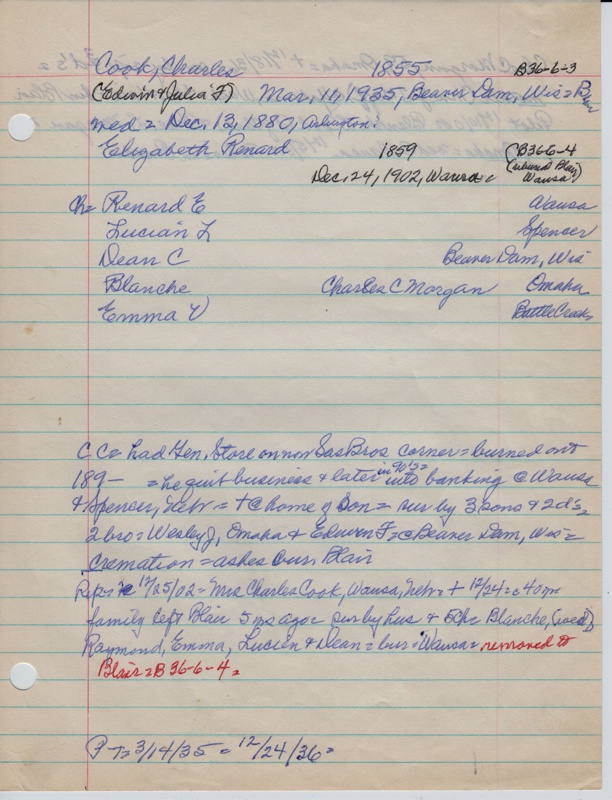 Cook, Charles 1855 B36-6-3
(Edwin & Julia F) Mar. 11, 1935, Beaver Dam, Wis = Blair
med = Dec. 13, 1880, Arlington?
Elizabeth Renard 1859 (B36-6-4
Dec. 24, 1902, Wausa = Blair Wausa)
Ch = Renard E Wausa
Lucian L Spencer
Dean C Beaver Dam, Wis
Blanche Charles C Morgan Omaha
Emma V Battle Creek
C C = had Gen. Store on now Sas Bros corner = burned out
189- = he quit business & later in 90's = into banking @ Wausa
& Spencer, Nebr = + @ home of Son = sur by 3 sons & 2 d's =
2 bro = Wesley J, Omaha & Edwin F = @ Beaver Dam, Wis =
cremation = ashes bur. Blair
Rep: 12/25/02 = Mrs Charles Cook, Wausa, Nebr = + 12/24 = @ 40
family left Blair 5 ago = sur by hus & 5 ch = Blanche, (wed)
Raymond, Emma, Lucien & Dean = bur = Wausa = removed to
Blair = B 36-6-4 =
P T = 3/14/35 = 12/24/36 =